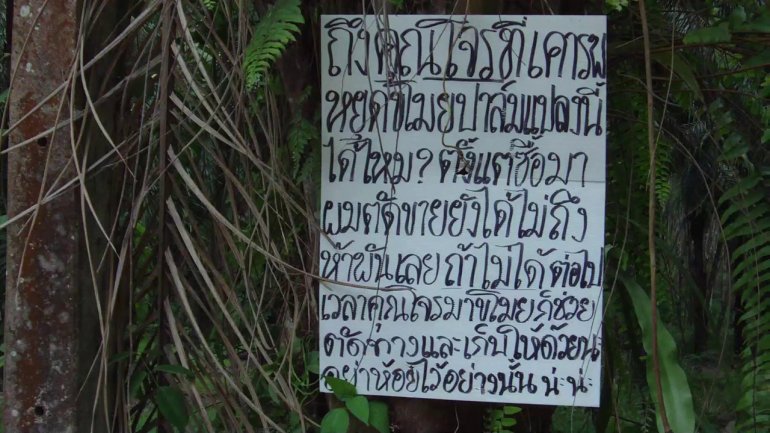 ถึงคุณโจรที่เคารพ
หยุดขโมยปาล์มแปลงนี้
ได้ไหม? ตั้งแต่ซื้อมา
ผมตัดขายยังได้ไม่ถึง
ห้าพันเลย ถ้าไม่ได้ ต่อไป
เวลาคุณโจรมาขโมยก็ช่วย
ตัดทางและเก็บให้ด้วยนะ
อย่าห้อยไว้อย่างนั้น น่ะนะ